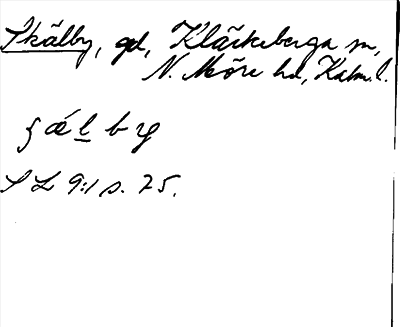 Skälby, gd, Kläckeberga sn,
N. Möre hd, Kalm. l.
ʂǽḷby
SL 9:1 s. 25.